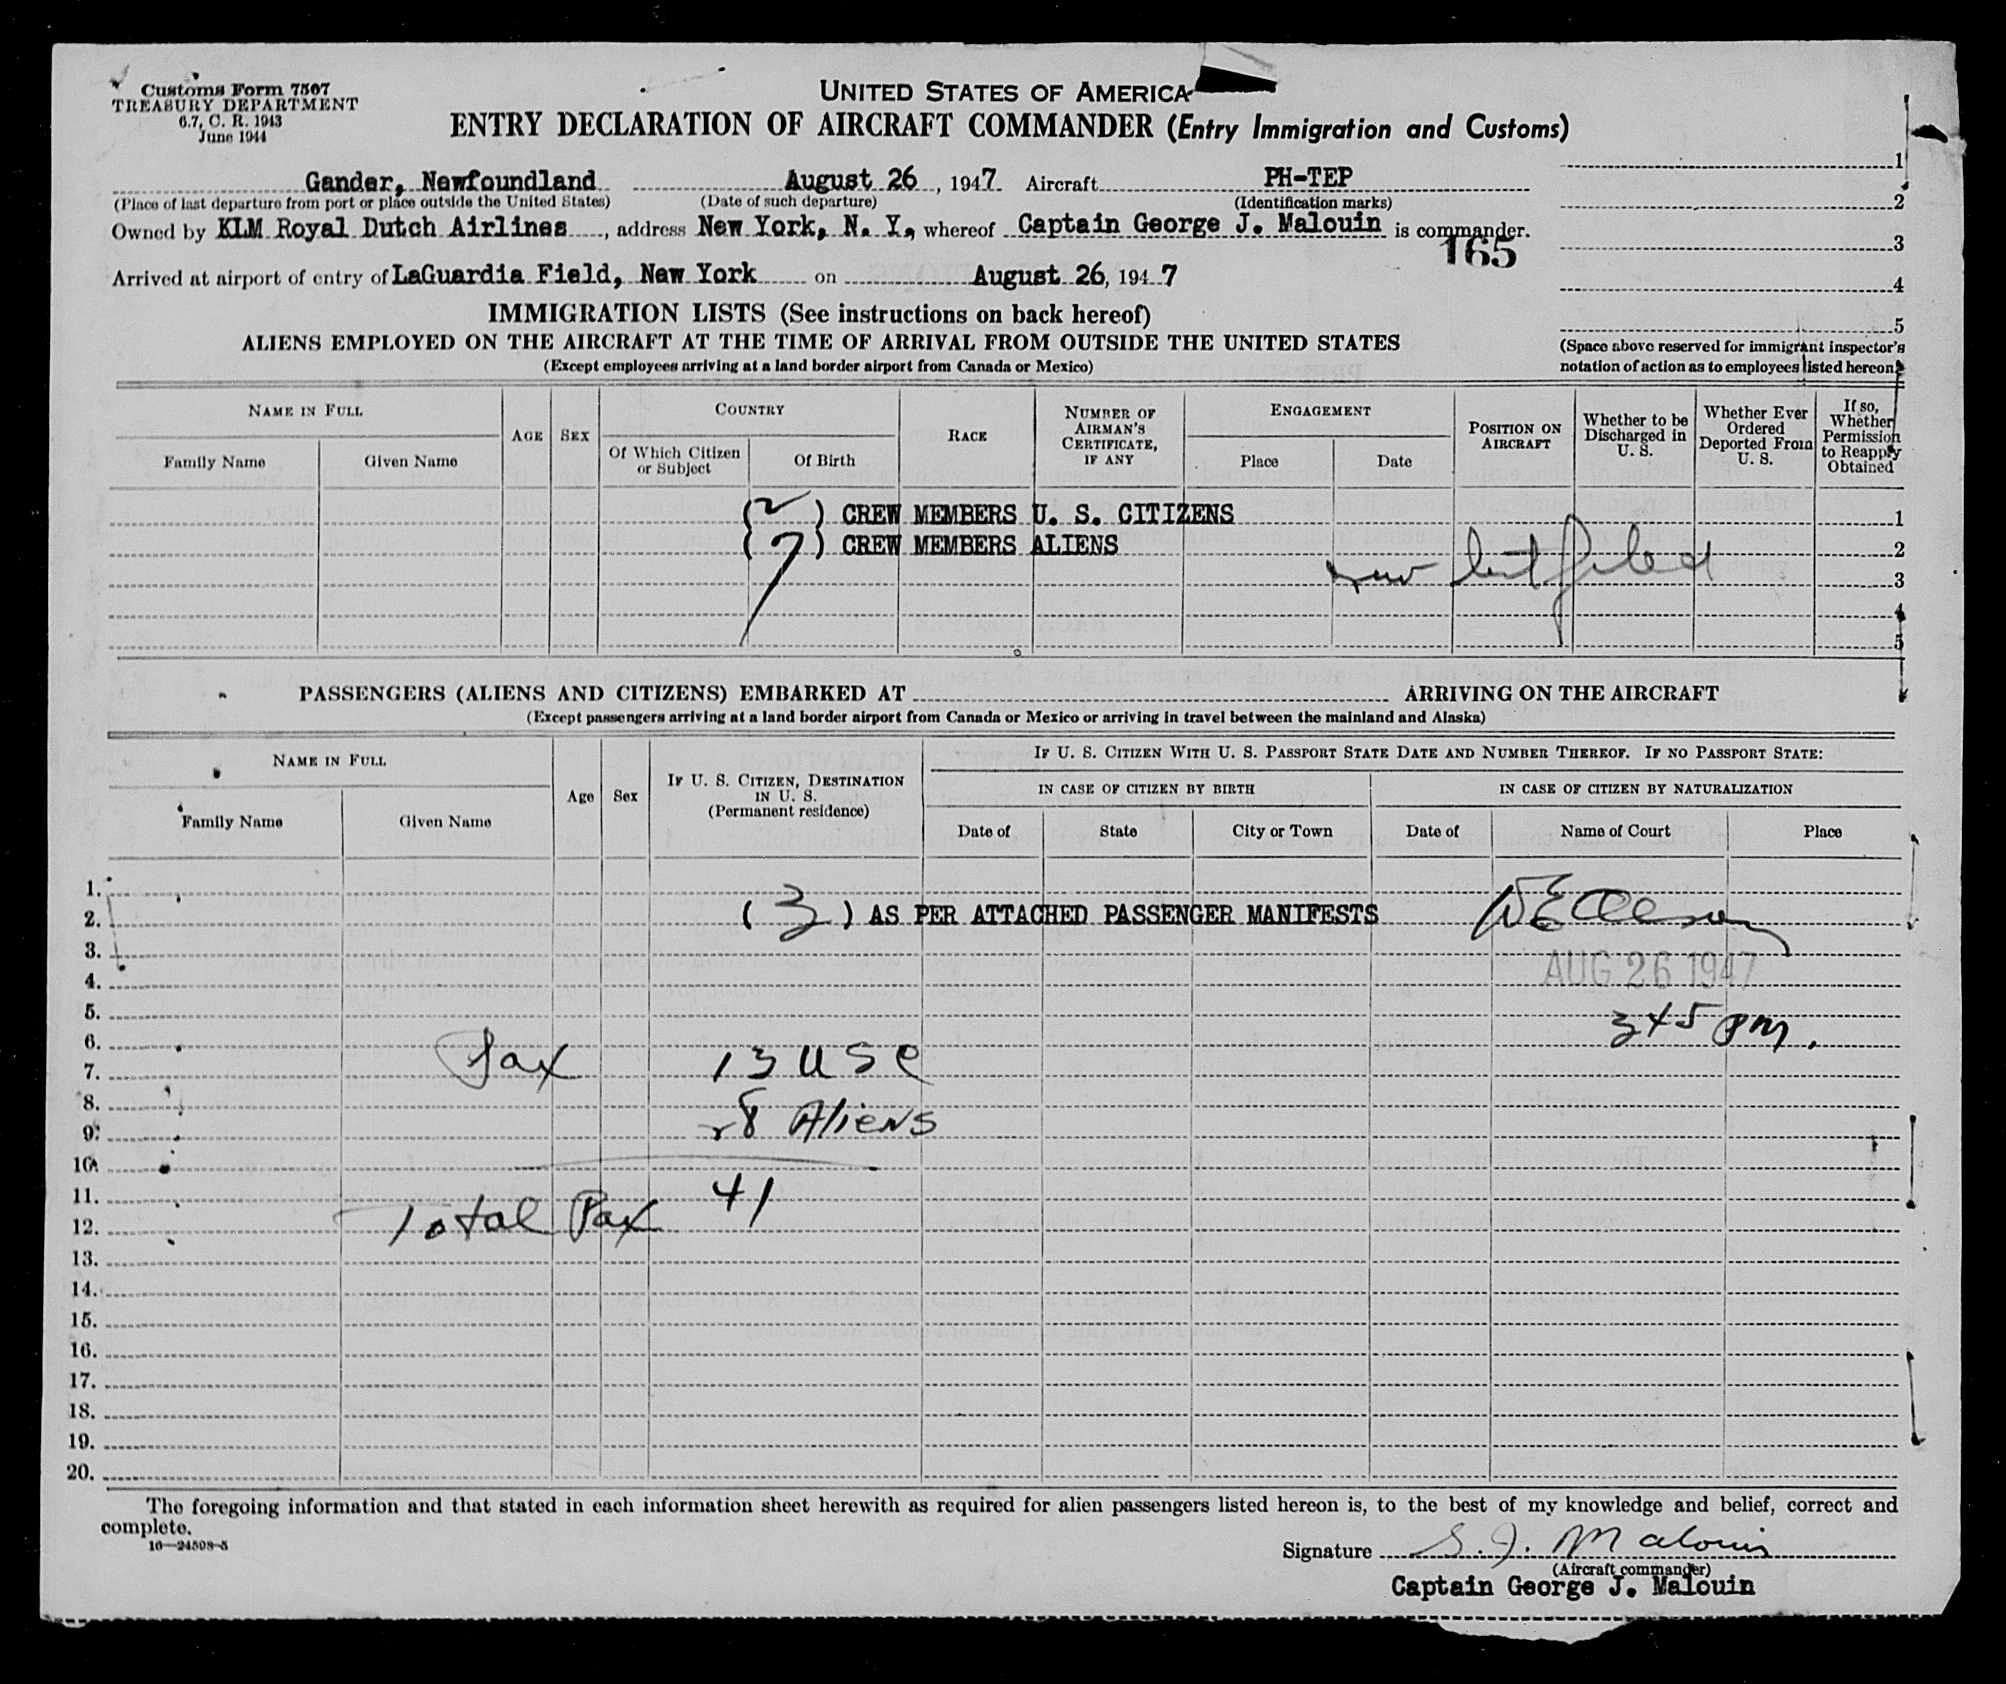 Customs Form 7507
TREASURY DEPARTMENT
6.7, C. R. 1943
June 1944
UNITED STATES OF AMERICA
ENTRY DECLARATION OF AIRCRAFT COMMANDER (Entry Immigration and Customs)
Gander, Newfoundland August 26, 1947 Aircraft PH-TEP
(Place of last departure from port or place outside the United States) (Date of such departure) (Identification marks)
Owned by KLM Royal Dutch Airlines, address New York, N. Y., whereof Captain George J. Malouin is commander.
165
Arrived at airport of entry of LaGuardia Field, New York on August 26, 1947
1
2
3
4
5
(Space above reserved for immigrant inspector's
notation of action as to employees listed hereon)
IMMIGRATION LISTS (See instructions on back hereof)
ALIENS EMPLOYED ON THE AIRCRAFT AT THE TIME OF ARRIVAL FROM OUTSIDE THE UNITED STATES
(Except employees arriving at a land border airport from Canada or Mexico)
NAME IN FULL
Family Name
Given Name
AGE
SEX
COUNTRY
Of Which Citizen
or Subject
Of Birth
RACE
NUMBER OF
AIRMAN'S
CERTIFICATE,
IF ANY
ENGAGEMENT
Place
Date
POSITION ON
AIRCRAFT
Whether to be
Discharged in
U. S.
Whether Ever
Ordered
Deported From
U. S.
If so,
Whether
Permission
to Reapply
Obtained
(2) CREW MEMBERS U. S. CITIZENS 1
(7) CREW MEMBERS ALIENS 2
list filed 3
4
5
PASSENGERS (ALIENS AND CITIZENS) EMBARKED AT ARRIVING ON THE AIRCRAFT
(Except passengers arriving at a land border airport from Canada or Mexico or arriving in travel between the mainland and Alaska)
NAME IN FULL
Family Name
Given Name
Age
Sex
IF U. S. CITIZEN, DESTINATION
IN U. S.
(Permanent residence)
IF U. S. CITIZEN WITH U. S. PASSPORT STATE DATE AND NUMBER THEREOF. IF NO PASSPORT STATE:
IN CASE OF CITIZEN BY BIRTH
Date of
State
City or Town
IN CASE OF CITIZEN BY NATURALIZATION
Date of
Name of Court
Place
1.
2. (3) AS PER ATTACHED PASSENGER MANIFESTS
3.
4. AUG 26 1947
5.
6. 345 PM.
7. Pax 13 USC
8.
9. 28 Aliens
10.
11. 41
12. Total Pax
13.
14.
15.
16.
17.
18.
19.
20.
The foregoing information and that stated in each information sheet herewith as required for alien passengers listed hereon is, to the best of my knowledge and belief, correct and
complete.
16—24598-5
Signature G. J. Malouin
(Aircraft commander)
Captain George J. Malouin